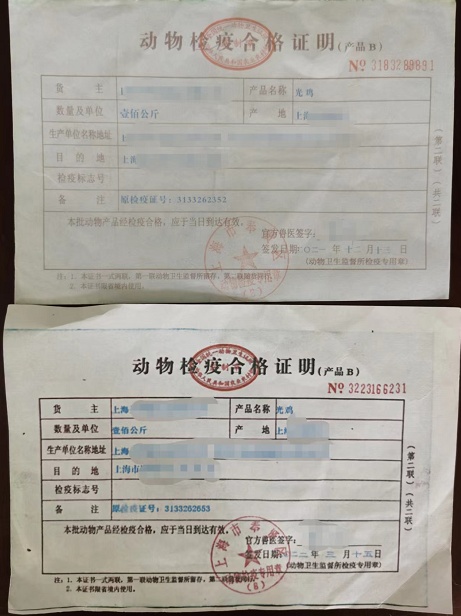 动物检疫合格证明(产品B)
№ 3183289891
货 主 产品名称 光鸡
数量及单位 壹佰公斤 产 地 上
生产单位名称地址
目 的 地 上
检疫标志号
备 注 原检疫证号：3133262352
本批动物产品经检疫合格，应于当日到达有效。
官方兽医签字：
签发日期：二〇二一年 十二月 十三日
(动物卫生监督所检疫专用章)
注：1．本证书一式两联，第一联动物卫生监督所留存，第二联随货同行。
2．本证书限省境内使用。
(第二联)
(共二联)
上海市奉
动物检疫合格证明(产品B)
№ 3223166231
货 主 上海 产品名称 光鸡
数量及单位 壹佰公斤 产 地 上
生产单位名称地址 上海
目 的 地 上海市
检疫标志号
备 注 原检疫证号：3133262653
本批动物产品经检疫合格，应于当日到达有效。
官方兽医签字：
签发日期 二二年 三月 十五日
(动物卫生监督所检疫专用章)
注：1．本证书一式两联，第一联动物卫生监督所留存，第二联随货同行。
2．本证书限省境内使用。
(第二联)
(共二联)
上海市奉
检疫专用章
(8)